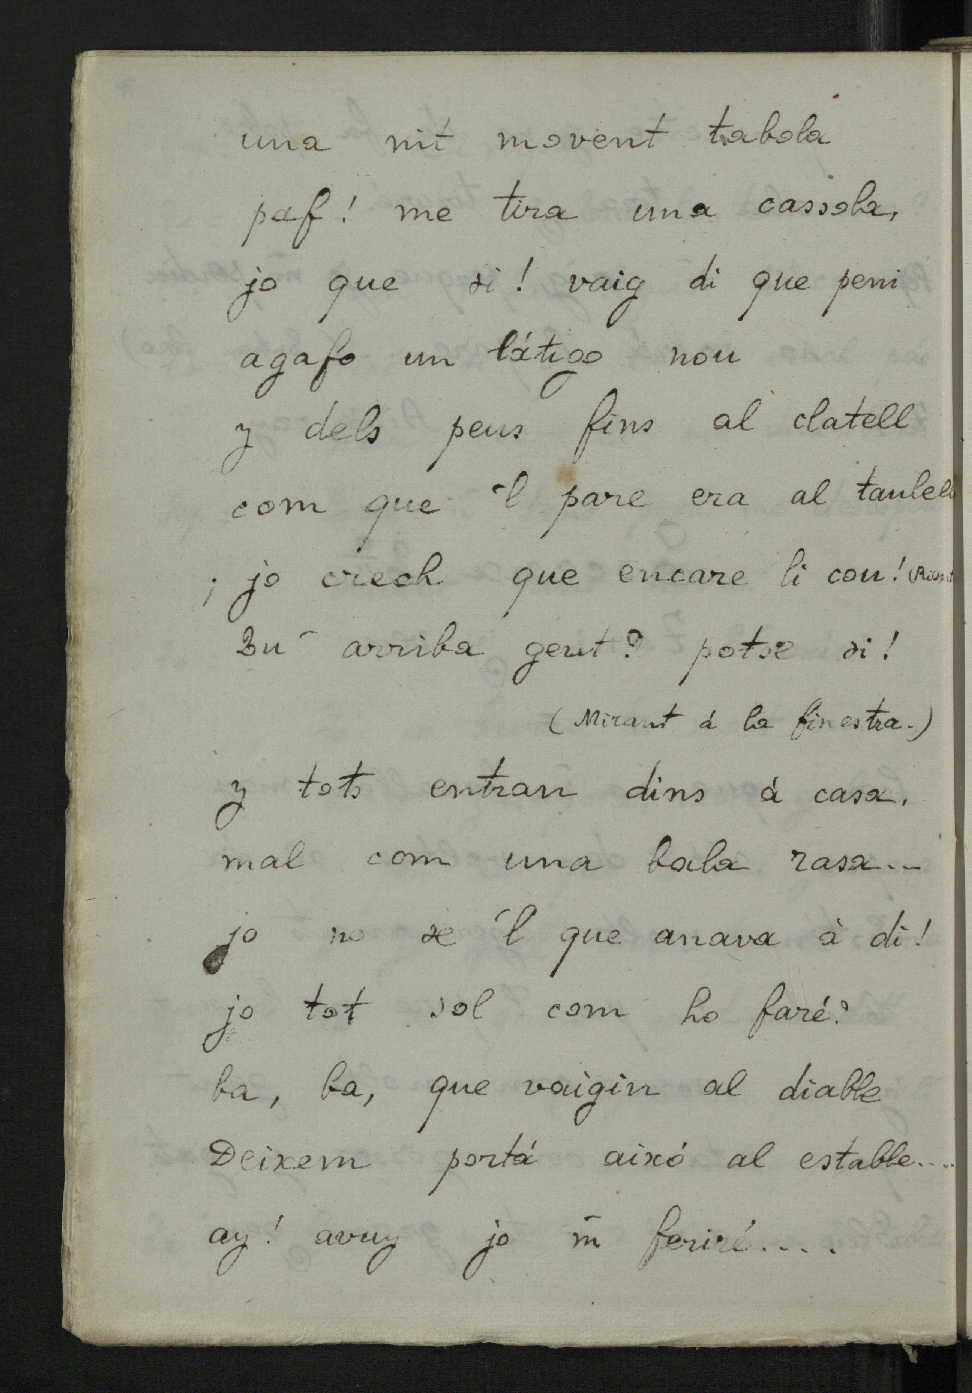 una nit movent tabola
paf! me tira una cassola,
jo que si! vaig di que peni
agafo un látigo nou
y dels peus fins al clatell
com que 'l pare era al taulell
jo crech que encare li cou! (Rient
Bu' arriba gent? potse si!
(Mirant á la finestra.)
y tots entran dins á casa.
mal com una bala rasa...
jo no se 'l que anava à di!
jo tot sol com ho faré?
ba, ba, que vaigin al diable
Deixem portá aixó al estable....
ay! avuy jo m' feriré....